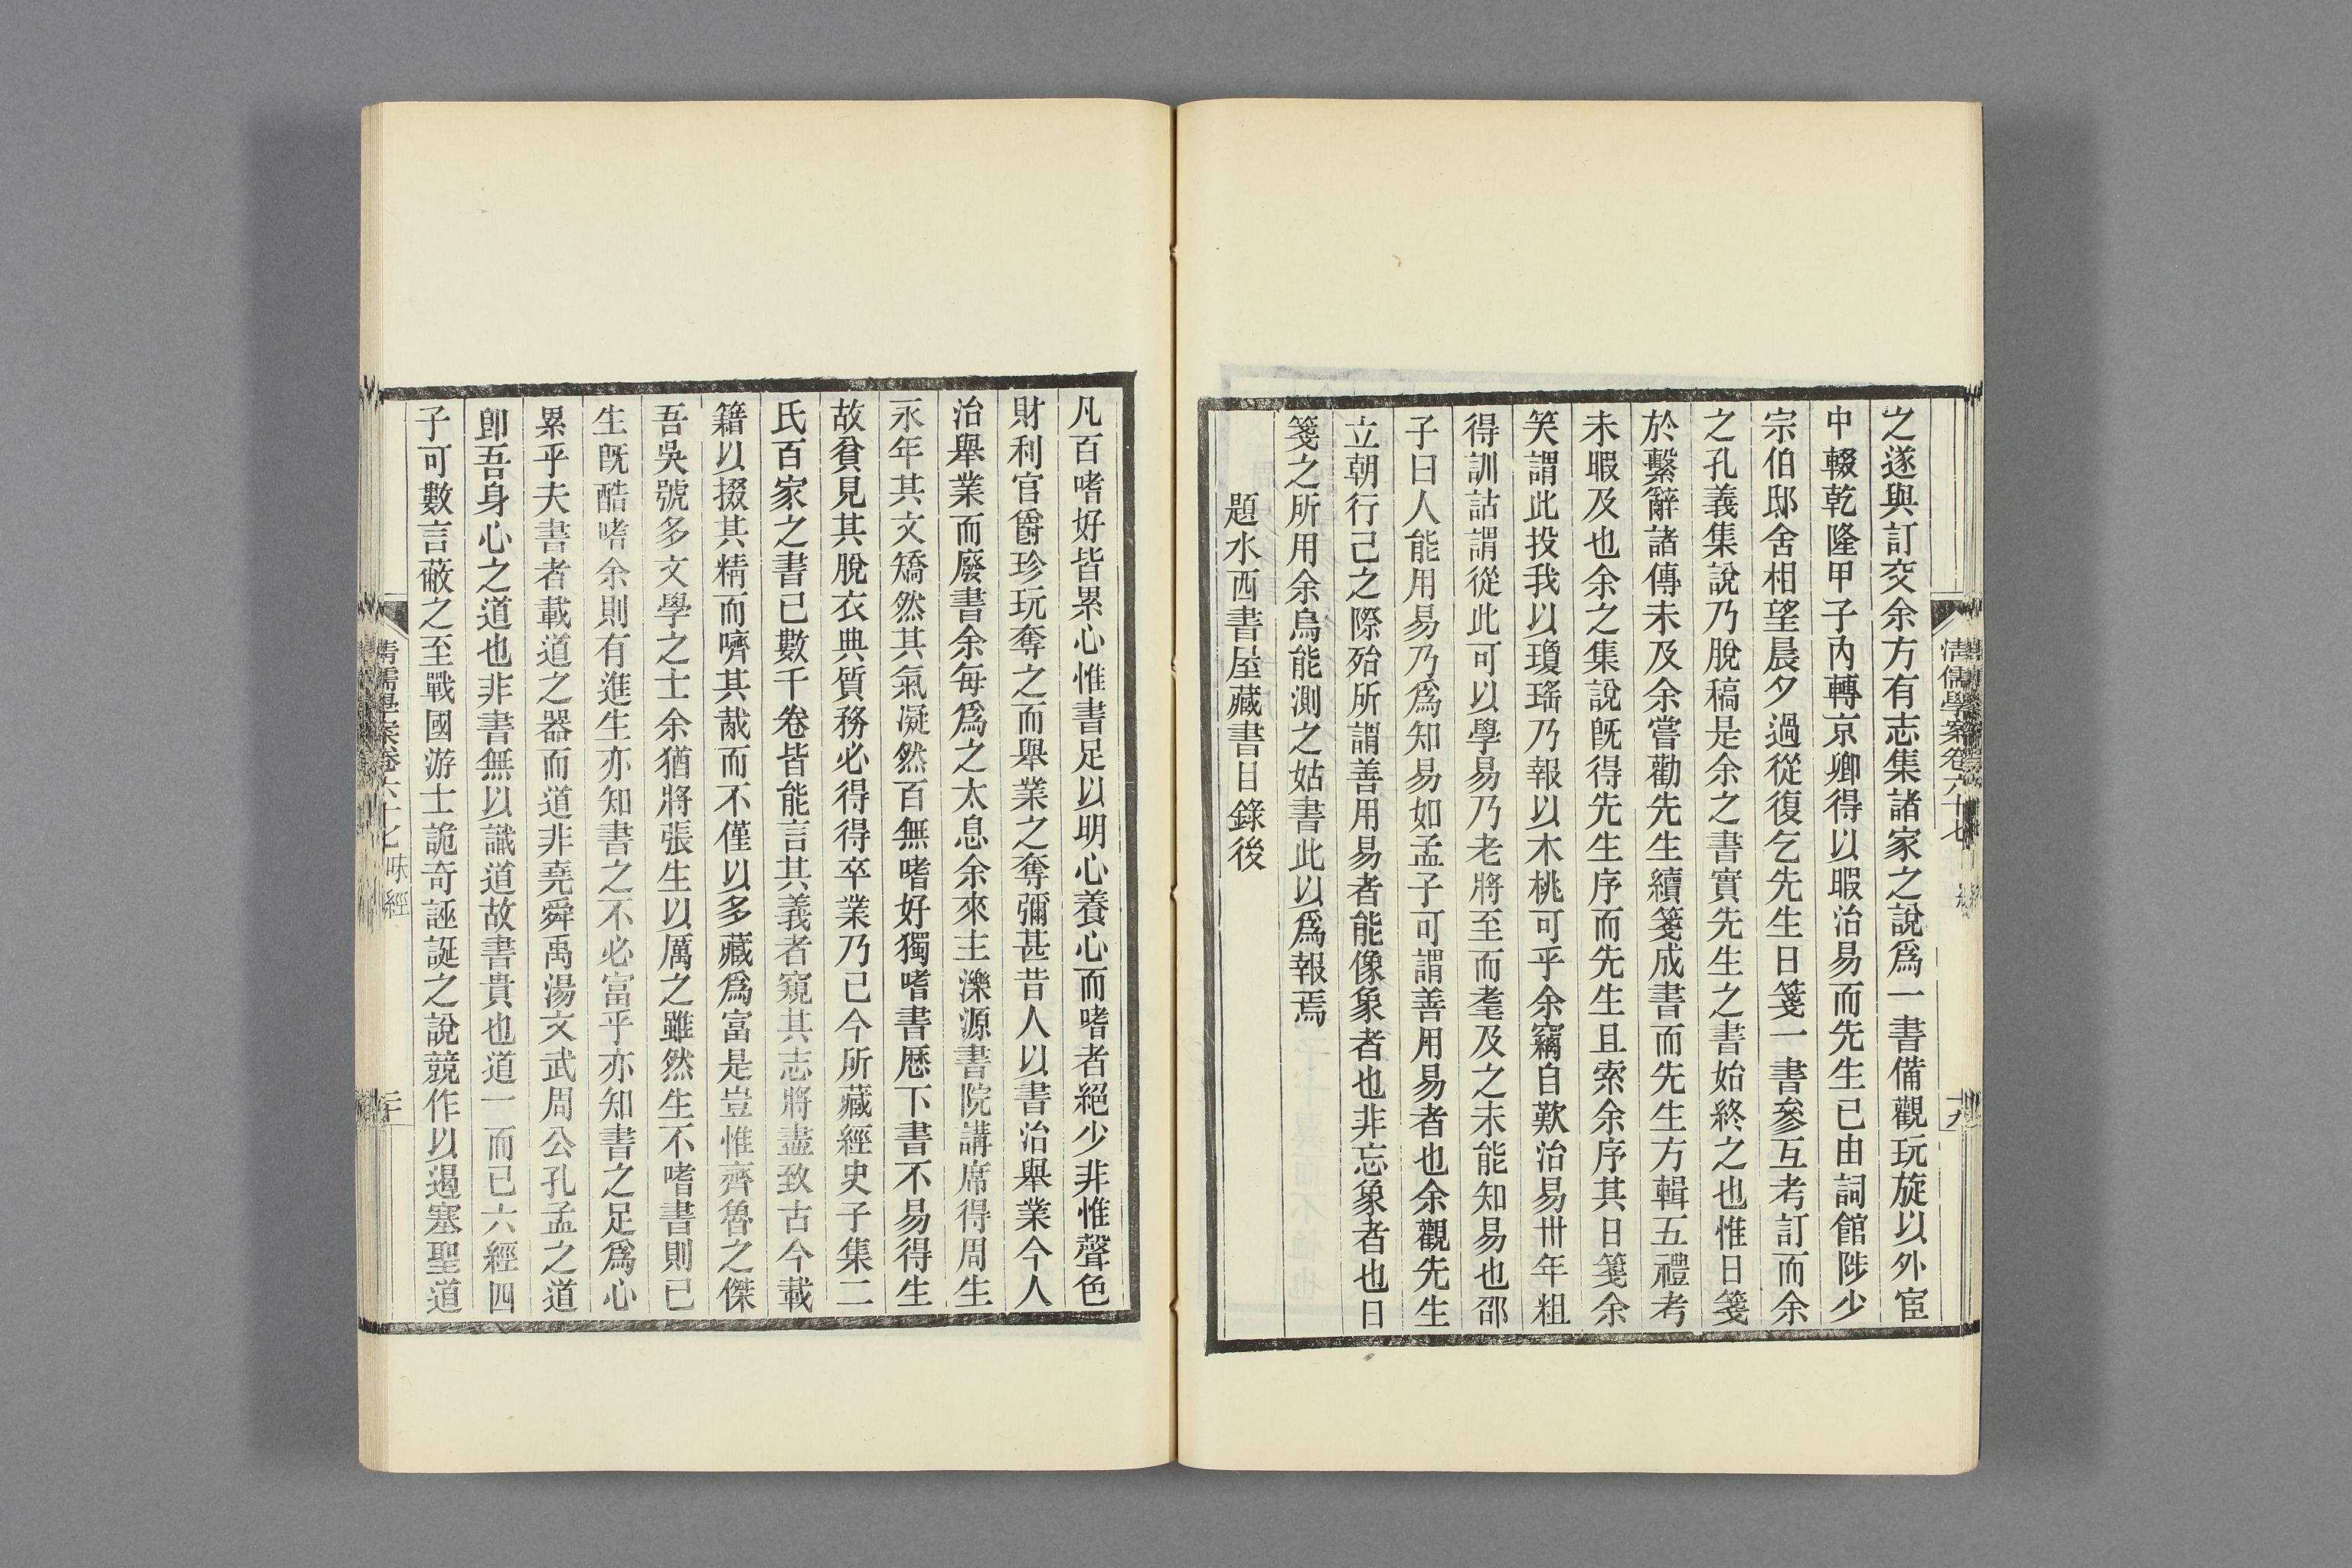 之遂與訂交余方有志集諸家之說爲一書備觀玩旋以外宦
中輟乾隆甲子內轉京卿得以暇治易而先生已由詞館陟少
宗伯邸舍相望晨夕過從復乞先生日箋一書參互考訂而余
之孔義集說乃脫稿是余之書實先生之書始終之也惟日箋
於繫辭諸傳未及余嘗勸先生續箋成書而先生方輯五禮考
未暇及也余之集說旣得先生序而先生且索余序其日箋余
笑謂此投我以瓊瑤乃報以木桃可乎余竊自歎治易卅年粗
得訓詁謂從此可以學易乃老將至而耄及之未能知易也邵
子曰人能用易乃爲知易如孟子可謂善用易者也余觀先生
立朝行己之際殆所謂善用易者能像象者也非忘象者也日
箋之所用余烏能測之姑書此以爲報焉
題水西書屋藏書目錄後
清儒學案卷六十七
十九
凡百嗜好皆累心惟書足以明心養心而嗜者絕少非惟聲色
財利官爵珍玩奪之而舉業之奪彌甚昔人以書治舉業今人
治舉業而廢書余每爲之太息余來主濼源書院講席得周生
永年其文矯然其氣凝然百無嗜好獨嗜書歷下書不易得生
故貧見其脫衣典質務必得得卒業乃已今所藏經史子集二
氏百家之書已數千卷皆能言其義者窺其志將盡致古今載
籍以掇其精而嚌其胾而不僅以多藏爲富是豈惟齊魯之傑
吾吳號多文學之士余猶將張生以厲之雖然生不嗜書則已
生旣酷嗜余則有進生亦知書之不必富乎亦知書之足爲心
累乎夫書者載道之器而道非堯舜禹湯文武周公孔孟之道
卽吾身心之道也非書無以識道故書貴也道一而已六經四
子可數言蔽之至戰國游士詭奇誣誕之說競作以遏塞聖道
清儒學案卷六十七 味經
二十